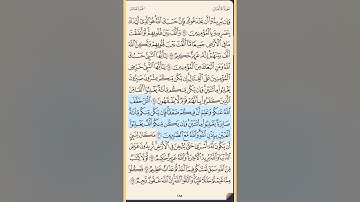 وَإِن يُرِيدُوٓا۟ أَن يَخْدَعُوكَ فَإِنَّ حَسْبَكَ ٱللَّهُ هُوَ ٱلَّذِىٓ أَيَّدَكَ
بِنَصْرِهِۦ وَبِٱلْمُؤْمِنِينَ ٦٢ وَأَلَّفَ بَيْنَ قُلُوبِهِمْ لَوْ أَنفَقْتَ
مَا فِى ٱلْأَرْضِ جَمِيعًا مَّآ أَلَّفْتَ بَيْنَ قُلُوبِهِمْ وَلَٰكِنَّ ٱللَّهَ
أَلَّفَ بَيْنَهُمْ إِنَّهُۥ عَزِيزٌ حَكِيمٌ ٦٣ يَٰٓأَيُّهَا ٱلنَّبِىُّ حَسْبُكَ
ٱللَّهُ وَمَنِ ٱتَّبَعَكَ مِنَ ٱلْمُؤْمِنِينَ ٦٤ يَٰٓأَيُّهَا ٱلنَّبِىُّ حَرِّضِ
ٱلْمُؤْمِنِينَ عَلَى ٱلْقِتَالِ إِن يَكُن مِّنكُمْ عِشْرُونَ صَٰبِرُونَ
يَغْلِبُوا۟ مِا۟ئَتَيْنِ وَإِن يَكُن مِّنكُم مِّا۟ئَةٌ يَغْلِبُوٓا۟ أَلْفًا مِّنَ
ٱلَّذِينَ كَفَرُوا۟ بِأَنَّهُمْ قَوْمٌ لَّا يَفْقَهُونَ ٦٥ ٱلْـَٰٔنَ خَفَّفَ
ٱللَّهُ عَنكُمْ وَعَلِمَ أَنَّ فِيكُمْ ضَعْفًا فَإِن يَكُن مِّنكُم مِّا۟ئَةٌ
صَابِرَةٌ يَغْلِبُوا۟ مِا۟ئَتَيْنِ وَإِن يَكُن مِّنكُمْ أَلْفٌ يَغْلِبُوٓا۟
أَلْفَيْنِ بِإِذْنِ ٱللَّهِ وَٱللَّهُ مَعَ ٱلصَّٰبِرِينَ ٦٦ مَا كَانَ لِنَبِىٍّ
أَن يَكُونَ لَهُۥٓ أَسْرَىٰ حَتَّىٰ يُثْخِنَ فِى ٱلْأَرْضِ تُرِيدُونَ عَرَضَ
ٱلدُّنْيَا وَٱللَّهُ يُرِيدُ ٱلْءَاخِرَةَ وَٱللَّهُ عَزِيزٌ حَكِيمٌ ٦٧ لَّوْلَا كِتَٰبٌ
مِّنَ ٱللَّهِ سَبَقَ لَمَسَّكُمْ فِيمَآ أَخَذْتُمْ عَذَابٌ عَظِيمٌ ٦٨ فَكُلُوا۟
مِمَّا غَنِمْتُمْ حَلَٰلًا طَيِّبًا وَٱتَّقُوا۟ ٱللَّهَ إِنَّ ٱللَّهَ غَفُورٌ رَّحِيمٌ ٦٩
١٨٥